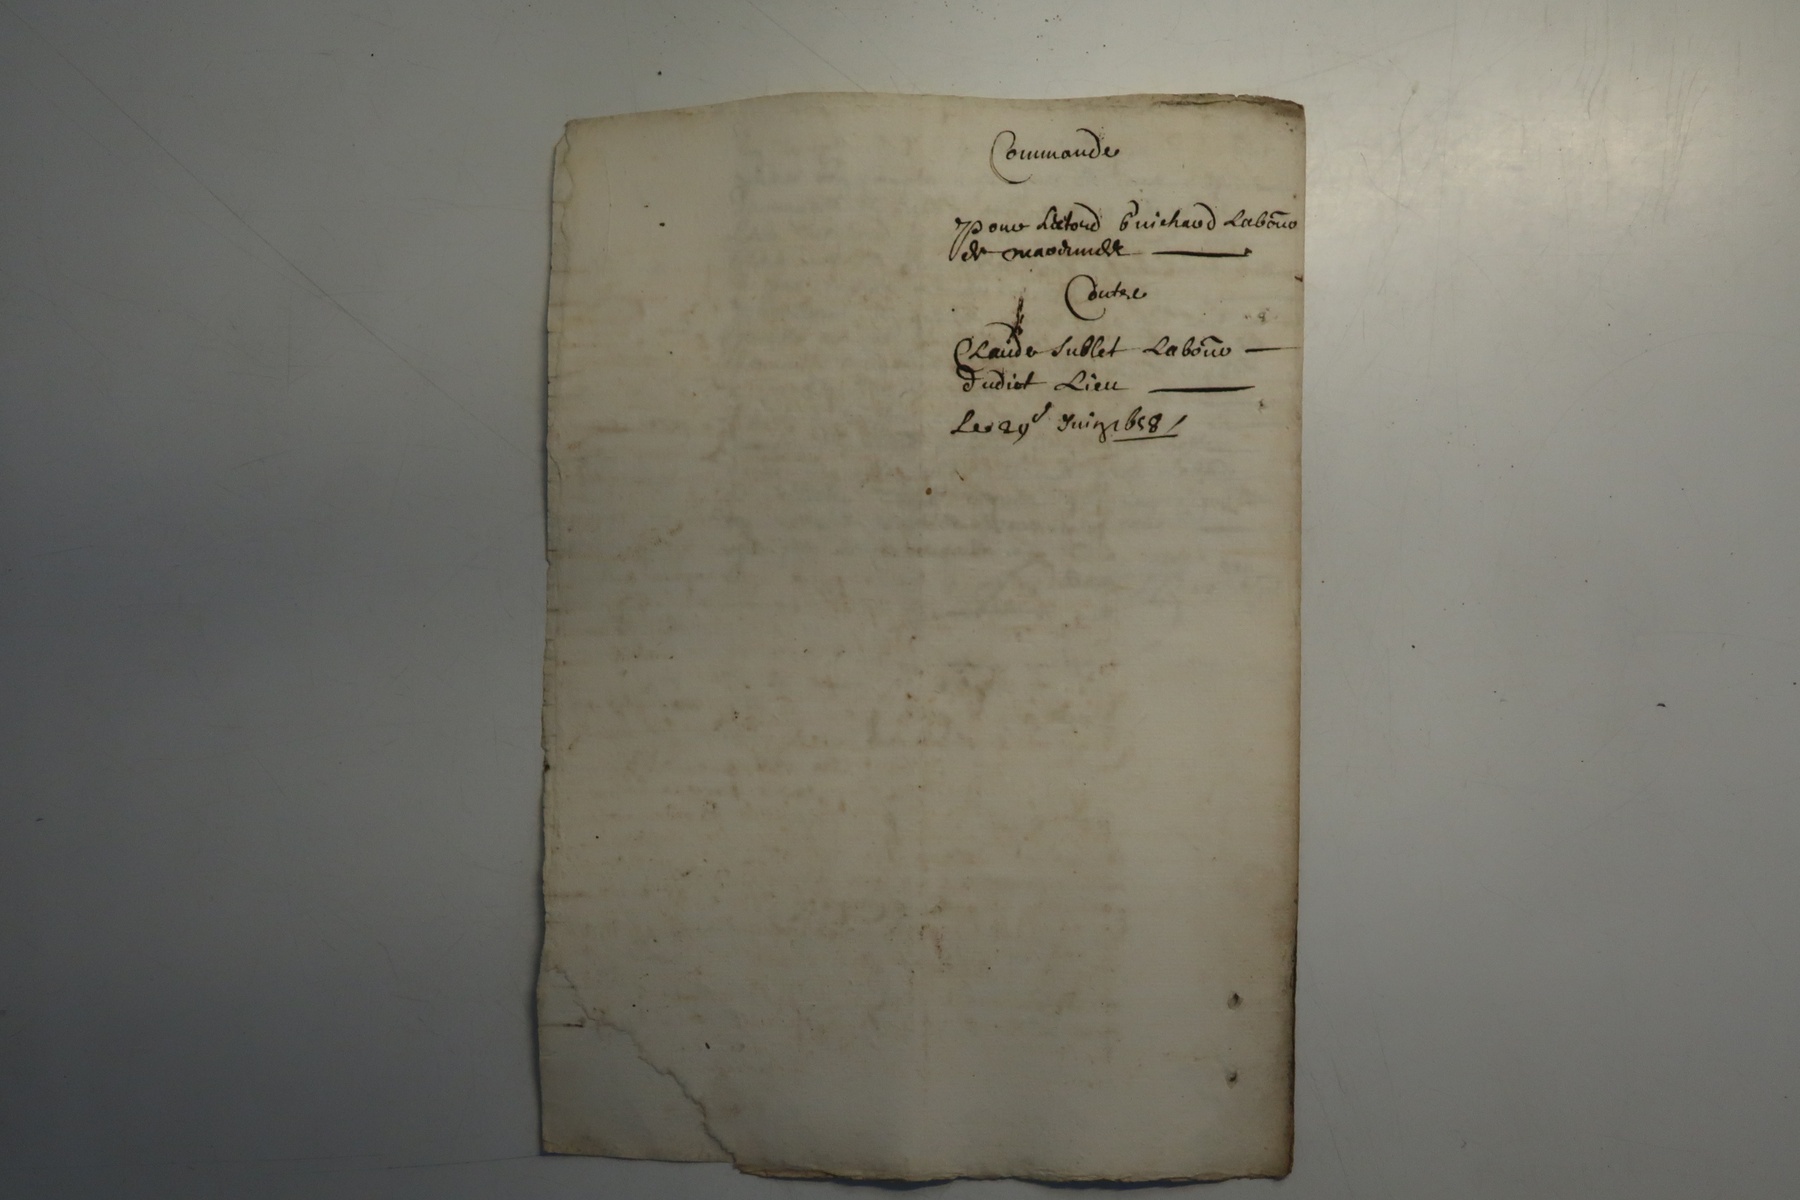 Commande
Pour Guichard Labõur
de
Contre
Claude Sublet Labõur
Dudict Lieu
Le 29e Juing 1658